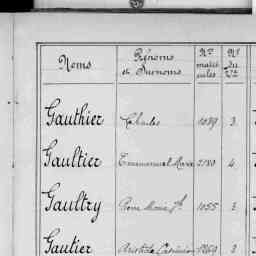 Noms
Prénoms et Surnoms
Nos matri cules
No du Vre
Gauthier Charles 1039 3
Gaultier Emmanuel Marie 2180 4
Gaultry Pierre Marie Jh 1055 3
Gautier Aristide Casimir 1269 3